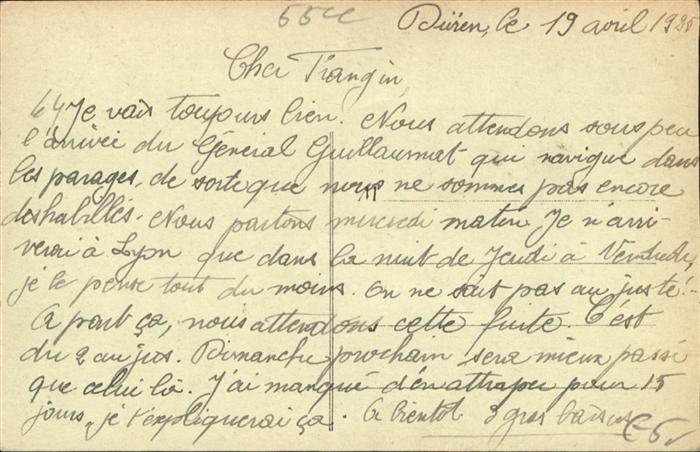 55cc
Düren, le 19 avril 19
Cher Frangin,
64 Je vais toujours bien. Nous attendons sous peu
l'arrivée du Général Guillaumat qui navigue dans
les parages, de sorte que nous ne sommes pas encore
deshabillés. Nous partons mercredi matin. Je n'arri-
verai à Lyon que dans la nuit de Jeudi à Vendredi,
je le pense tout du moins. On ne sait pas au juste!
A part ça, nous attendons cette fuite. C'est
du 2 au jus. Dimanche prochain sera mieux passé
que celui là. J'ai manqué d'en attraper pour 15
jours, je t'expliquerai ça. A bientôt 3 gros baisers